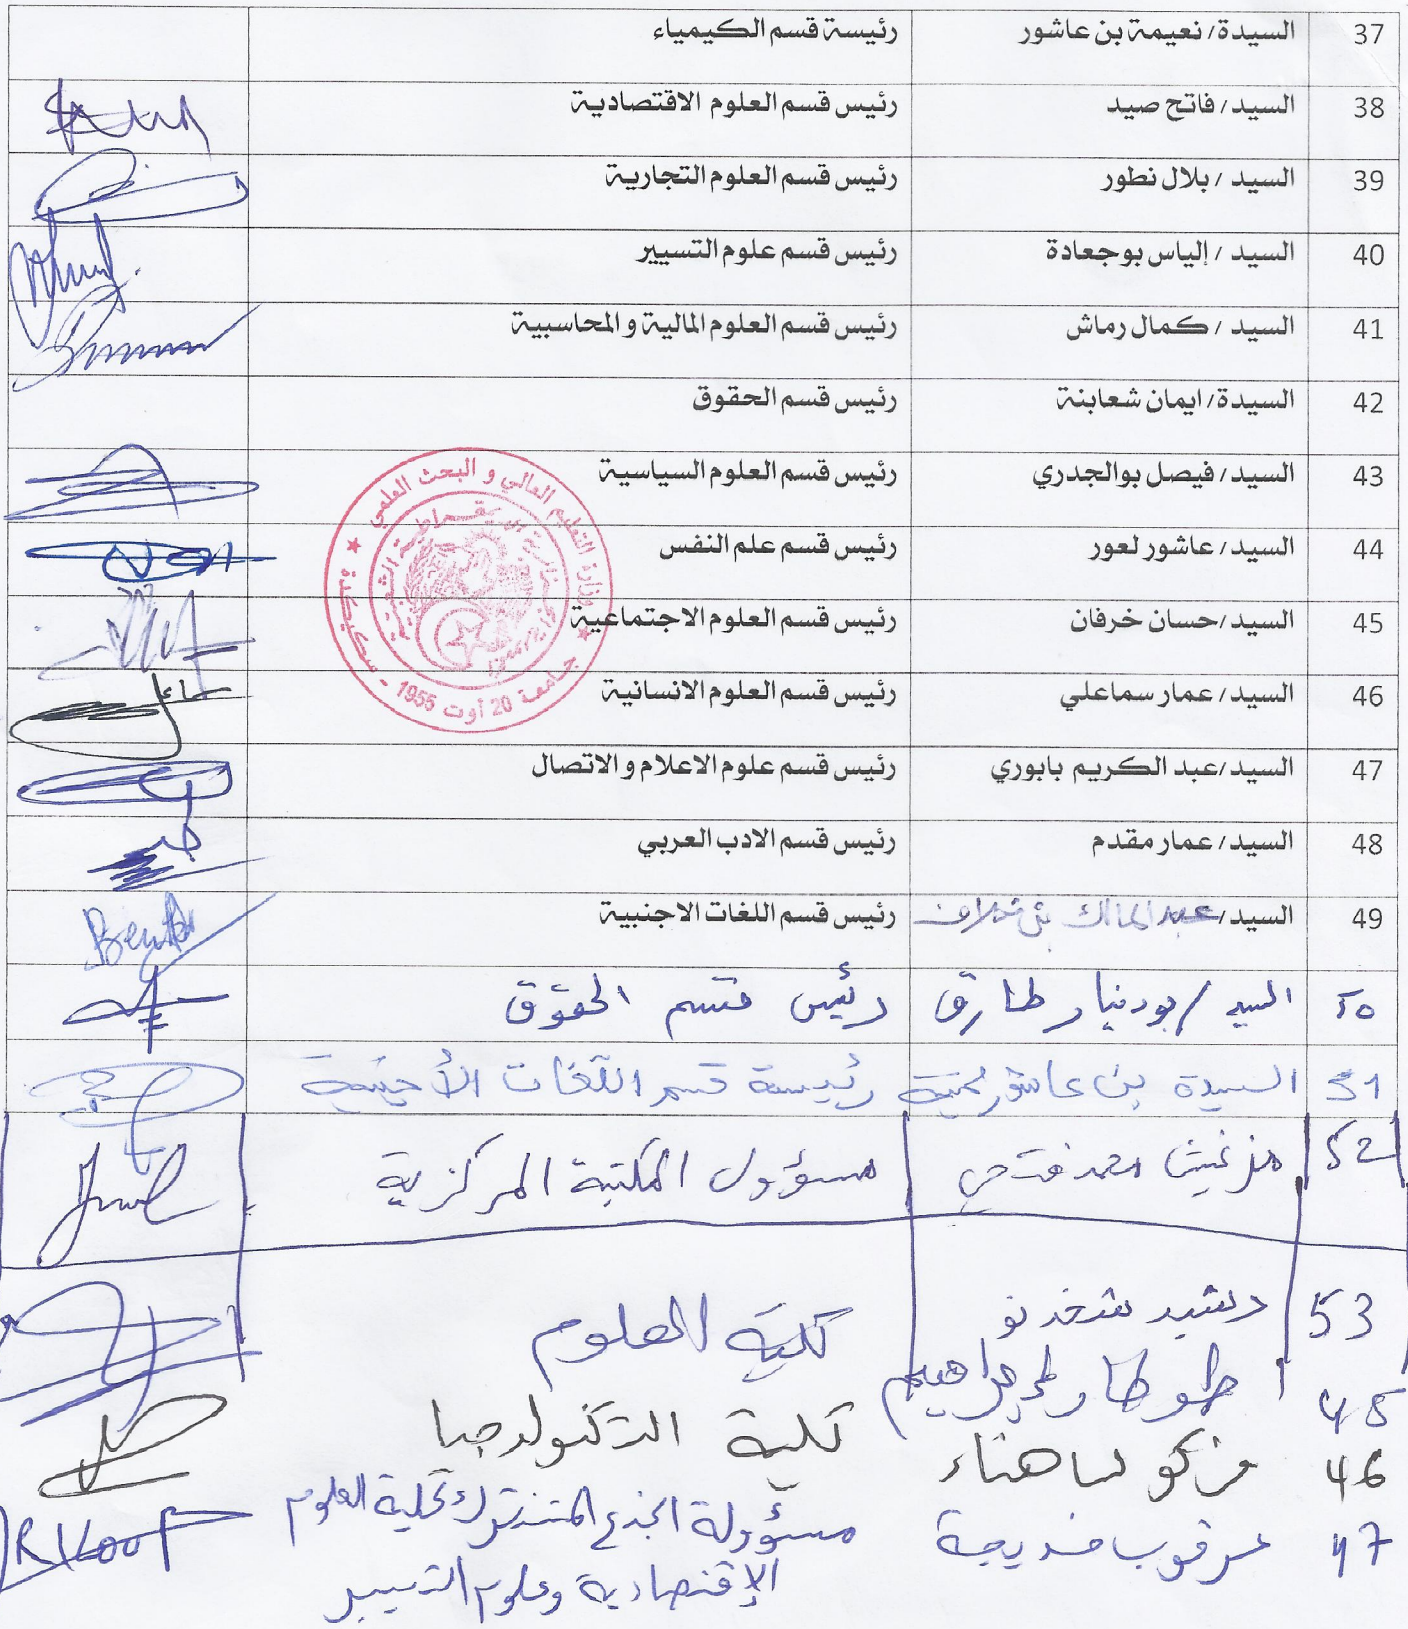 37 السيدة/ نعيمة بن عاشور رئيسة قسم الكيمياء
38 السيد/ فاتح صيد رئيس قسم العلوم الاقتصادية
39 السيد / بلال نطور رئيس قسم العلوم التجارية
40 السيد / إلياس بوجعادة رئيس قسم علوم التسيير
41 السيد / كمال رماش رئيس قسم العلوم المالية و المحاسبية
42 السيدة/ ايمان شعابنة رئيس قسم الحقوق
43 السيد/ فيصل بوالجدري رئيس قسم العلوم السياسية
44 السيد/ عاشور لعور رئيس قسم علم النفس
45 السيد/حسان خرفان رئيس قسم العلوم الاجتماعية
46 السيد/ عمار سماعلي رئيس قسم العلوم الانسانية
47 السيد/عبد الكريم بابوري رئيس قسم علوم الاعلام و الاتصال
48 السيد/ عمار مقدم رئيس قسم الادب العربي
49 السيد/ عبد المالك بن خلاف رئيس قسم اللغات الاجنبية
50 السيد / بودينار طارق رئيس قسم الحقوق
51 السيدة بن عاشور رئيسة قسم اللغات الأجنبية
52 محمد فتحي مسؤول المكتبة المركزية
53 رشيد كلية العلوم
45 ابراهيم
46 هناء كلية التكنولوجيا
47 عرقوب خديجة مسؤولة الجذع المشترك لكلية العلوم
الإقتصادية وعلوم التسيير
وزارة التعليم العالي و البحث العلمي
جامعة 20 أوت 1955 - سكيكدة